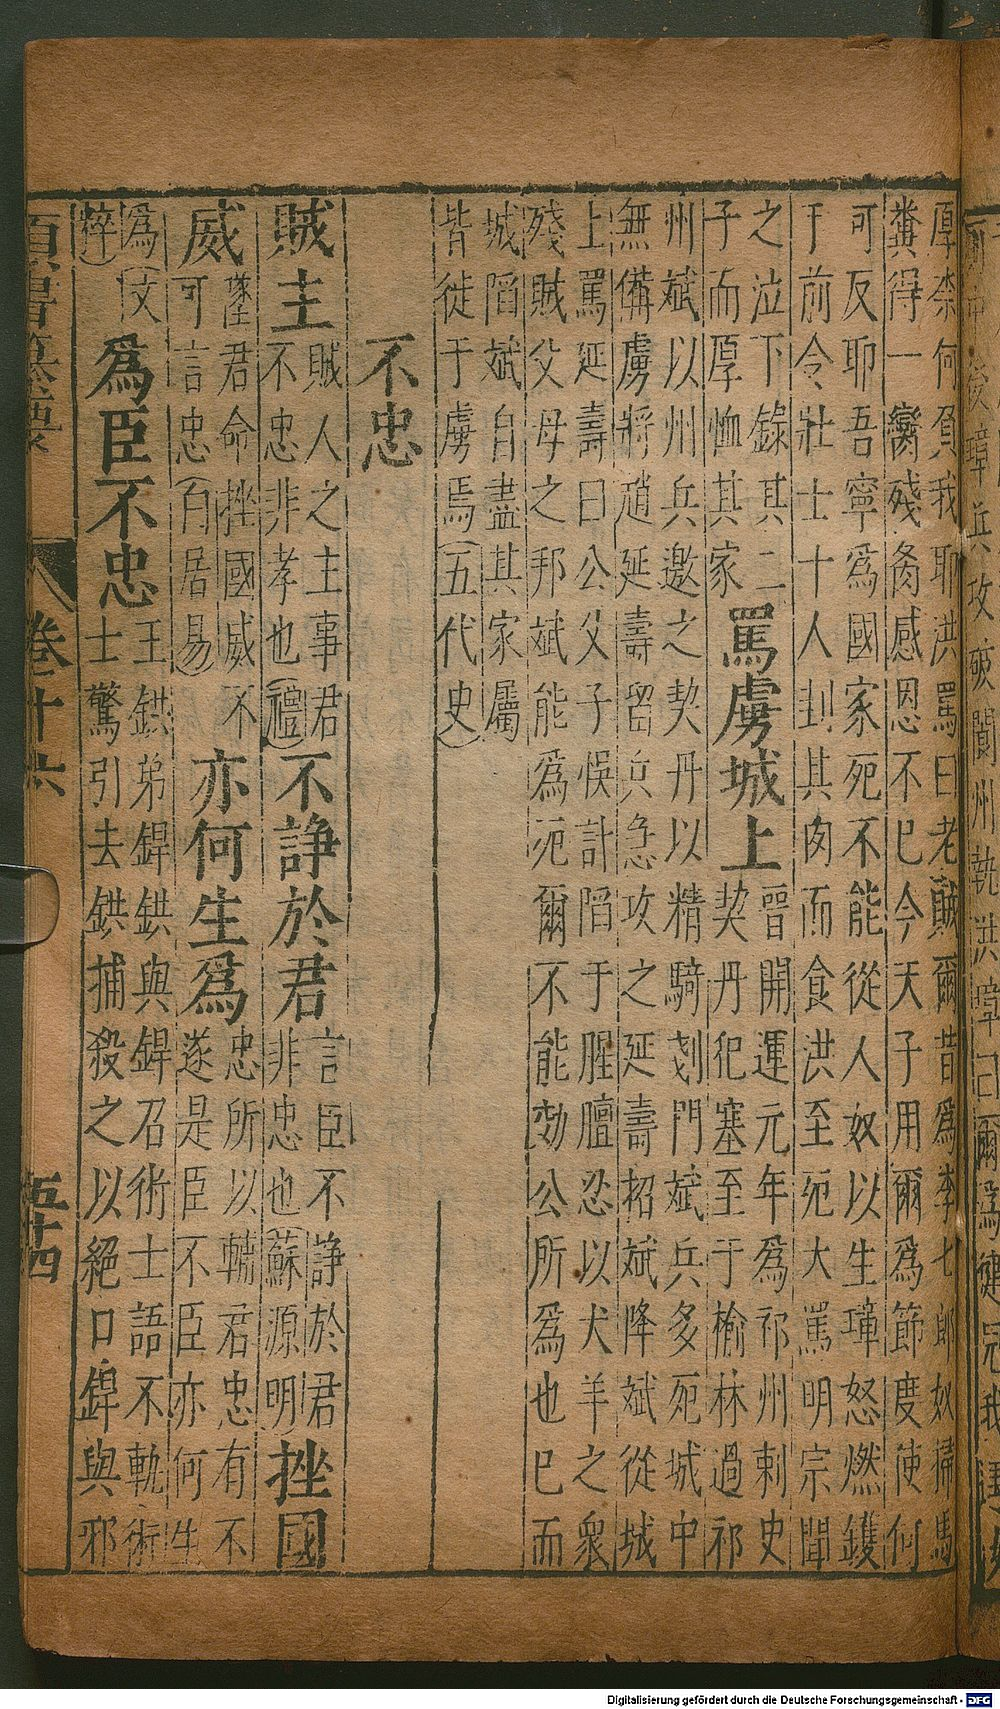 厚柰何負我耶洪罵曰老賊爾昔爲李七郎奴掃馬
糞得一臠殘炙感恩不已今天子用爾爲節度使何
可反耶吾寧爲國家死不能從人奴以生璋怒燃鑊
于前令壯士十人刲其肉而食洪至死大罵明宗聞
之泣下錄其二
子而厚恤其家
罵虜城上
晉開運元年爲祁州刺史
契丹犯塞至于榆林過祁
州斌以州兵邀之契丹以精騎剗門斌兵多死城中
無備虜將趙延壽留兵急攻之延壽招斌降斌從城
上罵延壽曰公父子悞計陷于腥膻忍以犬羊之衆
殘賊父母之邦斌能爲死爾不能効公所爲也已而
城陷斌自盡其家屬
皆徙于虜焉(五代史)
不忠
賊主
賊人之主事君
不忠非孝也(禮)
不諍於君
言臣不諍於君
非忠也(蘇源明)
挫國
威
墜君命挫國威不
可言忠(白居易)
亦何生爲
忠所以輔君忠有不
遂是臣不臣亦何生
爲(文
粹)
爲臣不忠
王鉷弟銲鉷與銲召術士語不軌術
士驚引去鉷捕殺之以絕口銲與邪
卷十六
五十四
Digitalisierung gefördert durch die Deutsche Forschungsgemeinschaft - DFG